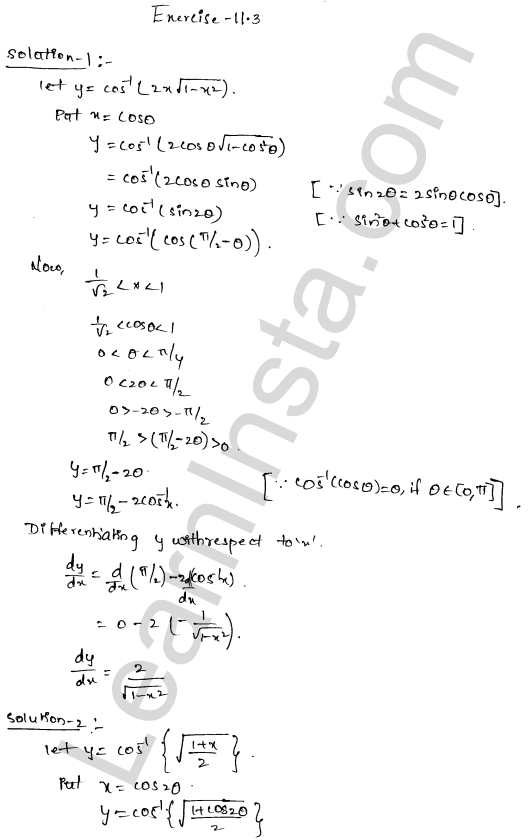 Exercise-11.3
Solution-1:-
let y = cos⁻¹(2x√1-x²).
Put x = cosθ
y = cos⁻¹(2cosθ√1-cos²θ)
= cos⁻¹(2cosθ sinθ) [∵ sin2θ = 2sinθcosθ].
y = cos⁻¹(sin2θ) [∵ sin²θ+cos²θ=1].
y = cos⁻¹(cos(π/2-θ)).
Now,
1/√2 < x < 1
1/√2 < cosθ < 1
0 < θ < π/4
0 < 2θ < π/2
0 > -2θ > -π/2
π/2 > (π/2-2θ) > 0
y = π/2-2θ. [∵ cos⁻¹(cosθ)=θ, if θ∈[0,π]].
y = π/2-2cos⁻¹x.
Differentiating y with respect to 'x'.
dy/dx = d/dx (π/2) - 2d/dx(cos⁻¹x)
= 0 - 2 (-1/√1-x²).
dy/dx = 2/√1-x²
Solution-2:-
let y = cos⁻¹{√1+x/2}.
Put x = cos2θ.
y = cos⁻¹{√1+cos2θ/2}
LearnInsta.com